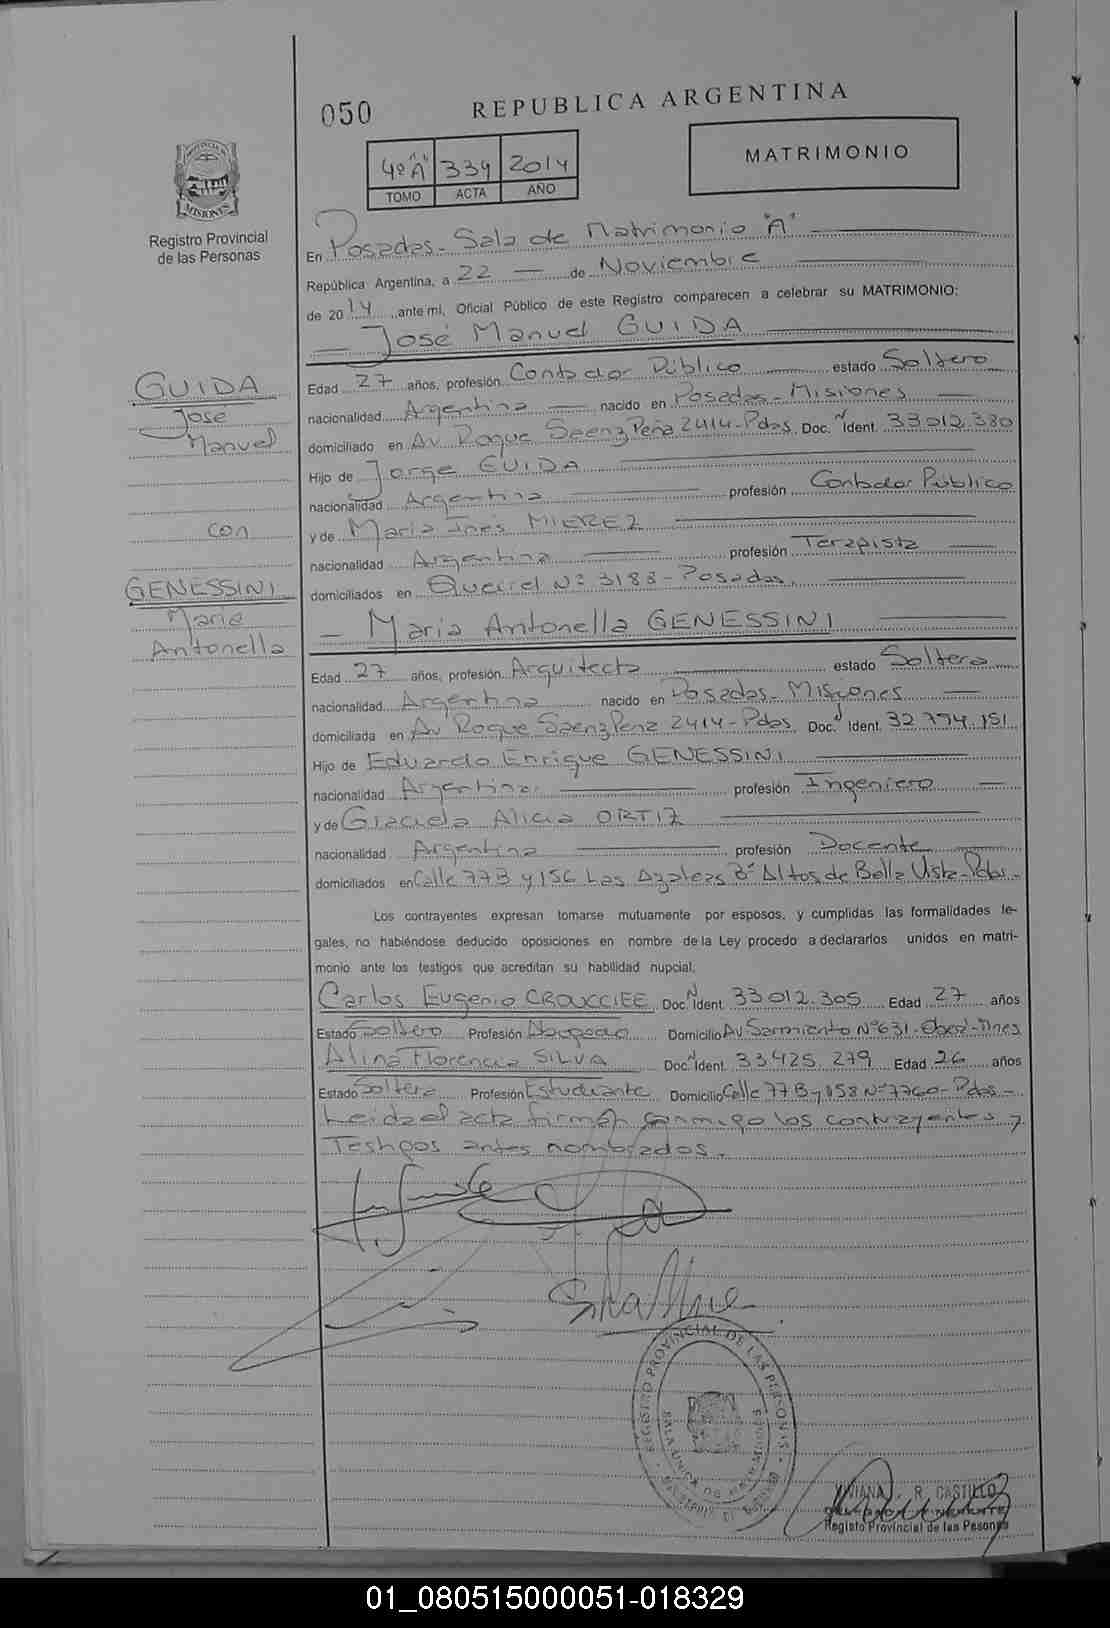 050 REPUBLICA ARGENTINA
4º "A" 334 2014
TOMO ACTA AÑO
MATRIMONIO
PROVINCIA DE MISIONES
Registro Provincial
de las Personas
En Posadas - Sala de Matrimonio "A"
República Argentina, a 22 — de Noviembre
de 2014 ante mí, Oficial Público de este Registro comparecen a celebrar su MATRIMONIO:
— José Manuel GUIDA
GUIDA
José
Manuel
con
GENESSINI
Maria
Antonella
Edad 27 años, profesión Contador Público estado Soltero
nacionalidad Argentina — nacido en Posadas - Misiones —
domiciliado en Av Roque Saenz Peña 2414 - Pdas Doc. N Ident. 33 012.380
Hijo de Jorge GUIDA
nacionalidad Argentina profesión Contador Público
y de Maria Inés MIEREZ
nacionalidad Argentina profesión Terapista
domiciliados en Nº 3188 - Posadas.
— Maria Antonella GENESSINI
Edad 27 años, profesión Arquitecta estado Soltera
nacionalidad Argentina nacido en Posadas - Misiones —
domiciliada en Av Roque Saenz Pena 2414 - Pdas Doc. N Ident. 32 774 151
Hijo de Eduardo Enrique GENESSINI
nacionalidad Argentina profesión Ingeniero —
y de Graciela Alicia ORTIZ
nacionalidad Argentina profesión Docente
domiciliados en Calle 77B y 156 Las Azaleas Bº Altos de Bella Vista - Pdas -
Los contrayentes expresan tomarse mutuamente por esposos, y cumplidas las formalidades le-
gales, no habiéndose deducido oposiciones en nombre de la Ley procedo a declararlos unidos en matri-
monio ante los testigos que acreditan su habilidad nupcial;
Carlos Eugenio Doc. N Ident. 33 012.305 Edad 27 años
Estado Soltero Profesión Abogado Domicilio Av Sarmiento Nº 631 - Oberá - Mnes
Alina Florencia SILVA Doc. N Ident. 33.425.279 Edad 26 años
Estado Soltera Profesión Estudiante Domicilio Calle 77B y 158 Nº 7760 - Pdas -
Leida el acta firman conmigo los contrayentes y
Testigos antes nombrados.
REGISTRO PROVINCIAL DE LAS PERSONAS
VIVIANA R. CASTILLO
Registo Provincial de las Pesonas
01_080515000051-018329